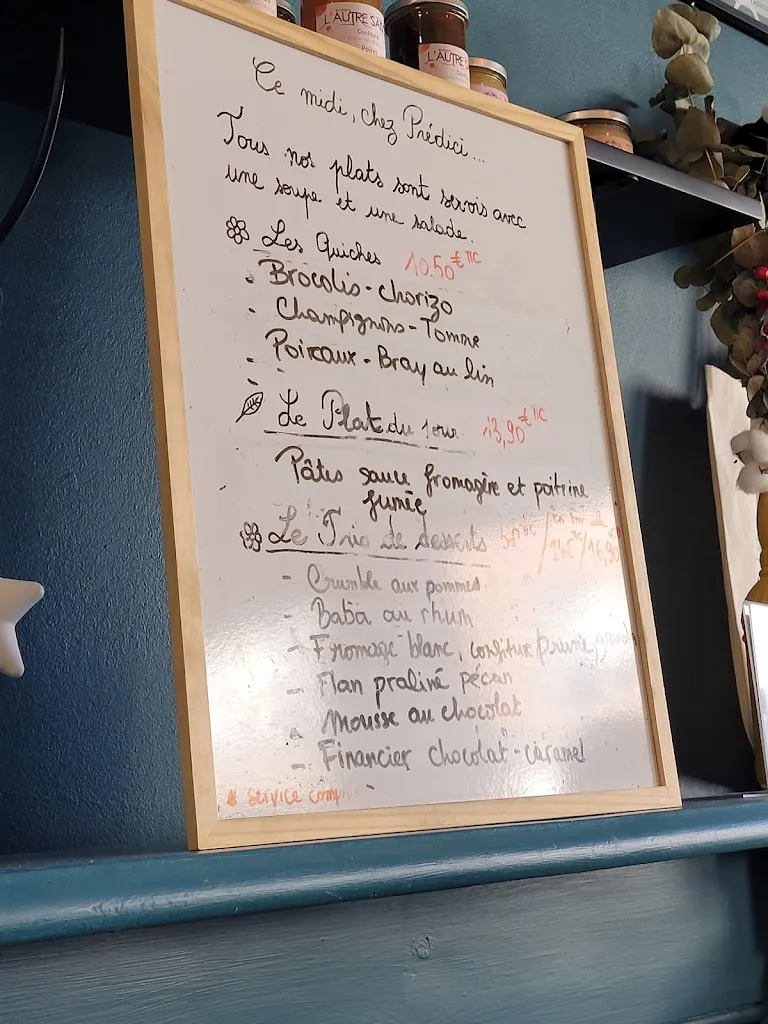 L'AUTRE
Confiture
L'AUTRE
Ce midi, chez Prédici...
Tous nos plats sont servis avec
une soupe et une salade.
Les Quiches 10.50€ TTC
- Brocolis - Chorizo
- Champignons - Tomme
- Poireaux - Bray au lin
Le Plat du jour 13,90€ TTC
Pâtes sauce fromagère et poitrine
fumée
Le Trio de desserts
- Crumble aux pommes
- Baba au rhum
- Fromage blanc, confiture prune,
- Flan praliné pécan
- Mousse au chocolat
- Financier chocolat - caramel
service